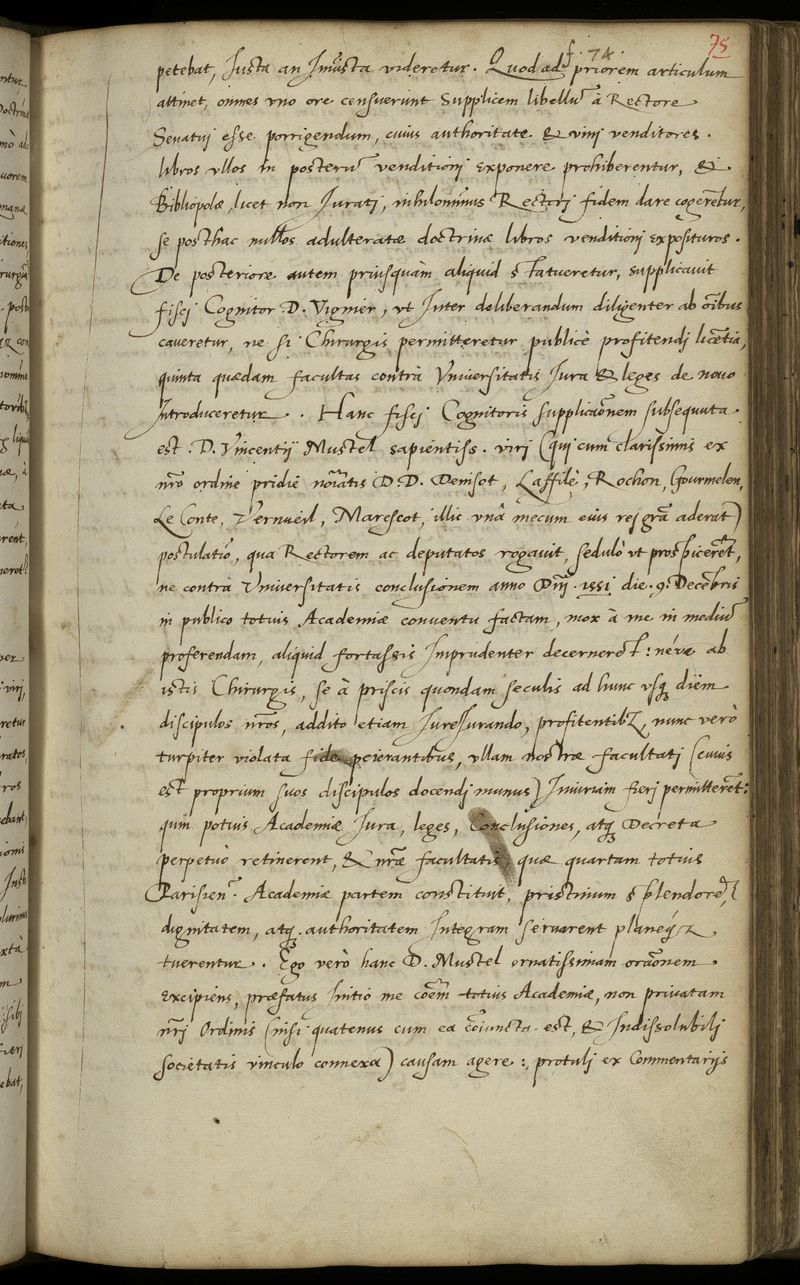 f. 74. 75
petebat, Iusta an Iniusta videretur. Quod ad priorem articulum
attinet, omnes vno ore censuerunt Supplicem libellū à Rectore
Senatuj esse porrigendum, cuius authoritate & vinj venditores.
libros vllos in posterū venditionj exponere prohiberentur, &
Bibliopolæ, licet non Iuratj, nihilominus Rectorj fidem dare cogerētur,
se posthac nullos adulteratæ doctrinæ libros venditionj exposituros.
De posteriore autem priusquàm aliquid statueretur, supplicauit
fiscj Cognitor D. Vignier, vt Inter deliberandum diligenter ab oībus
caueretur, ne si Chirurgis permitteretur publicè profitendj licētia,
quinta quædam facultas contrà Vniuersitatis Iura & leges de nouo
Introduceretur. Hanc fiscj Cognitoris supplicāonem subsequuta
est. D. Vincentij Mustel sapientiss. virj (quj cum clarissimis ex
nr̄o ordine pridie noīatis D.D. Denisot, Laffilé, Rochon, Gourmelen,
Le Conte, Verneuil, Marescot, illic vnâ mecum eius rej grā aderat)
postulatio, qua Rectorem ac deputatos rogauit, sedulò vt prospicerēt,
ne contrà Vniuersitatis conclusionem anno Dn̄j 1551 die. 9. Decēbris
in publico totius Academiæ conuentu factam, mox à me in mediū
proferendam, aliquid fortassis Imprudenter decernerēt: néve ab
istis Chirurgis, se à priscis quondam seculis ad hunc vsq; diēm
discipulos nr̄os, addito etiam IureIurando, profitentibꝫ, nunc verò
turpiter violata fide peierantibus, vllam nostræ facultatj (cuius
est proprium suos discipulos docendj munus) Iniuriam fierj permitterēt:
quin potius Academiæ Iura, leges, Conclusiones, atq; Decreta
perpetuò retinerent, & nr̄æ facultatis, quæ quartam totius
Parisien. Academiæ partem constituit, pristinum splendorē,
dignitatem, atq; authoritatem Integram seruarent planeq́ꝫ
tuerentur. Ego verò hanc D. Mustel ornatissimam orāonem
excipiens, præfatus Initio me cōēm totius Academiæ, non priuatam
nr̄j Ordinis (nisi quatenus cum ea cōiuncta est, & Indissolubilj
societatis vinculo connexa) causam agere:, protulj ex Commentarijs